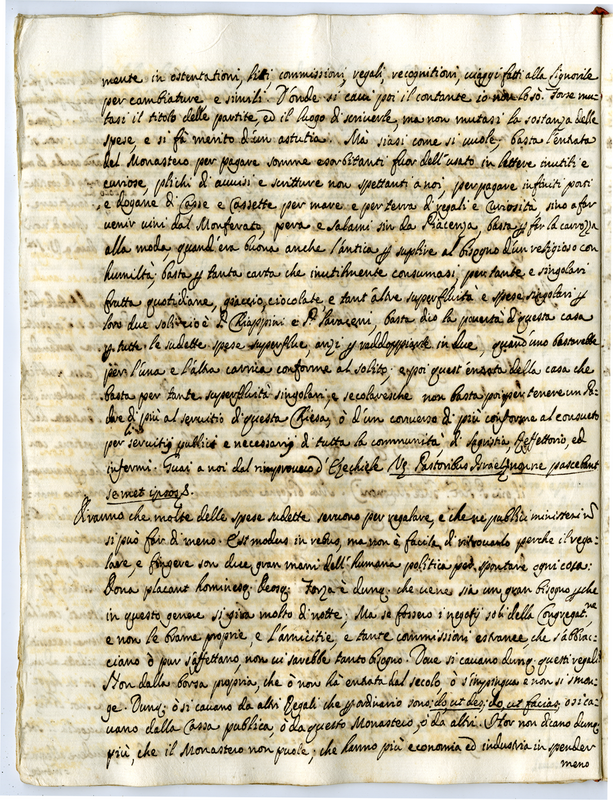 mente in ostentationi, liti commissioni, regali, recognitioni, viaggi fatti alla Signorile
per cambiature e simili. D'onde si cavi poi il contante io non lo sò. Forse mu-
tasi il titolo delle partite, ed il luogo di scriverle, ma non mutasi la sostanza delle
spese, e si fà merito d'un astutia. Mà siasi come si vuole, basta l'entrata
del Monastero per pagare somme esorbitanti fuor dell'usato in lettere inutili e
curiose, plichi di avvisi e scritture non spettanti a noi, per pagare infiniti porti
e dogane di Casse e Cassette per mare e per terra di regali e curiosità, sino a far
venir vini dal Monferato, pera e salami sin da Piacenza, basta p far la carozza
alla moda, quand'era buona anche l'antica p suplire al bisogno d'un religioso con
humiltà; basta p tanta carta che inutilmente consumasi, per tante, e singolari
frutta quotidiane, giaccio, ciocolate e tant'altre superfluità e spese singolari p
loro due soli cioè P. Chiappini e P. Saraceni, basta dico la povertà di questa casa
p tutte le sudette spese superflue, anzi p raddoppiarle in due, quand'uno bastarebbe
per l'una e l'altra carica conforme al solito; e poi quest'entrata della casa che
basta per tante superfluità singolari e secolaresche non basta poi per tenere un Pa-
dre di più al servitio di questa Chiesa, ò d'un converso di più conforme al consueto
per servitij publici e necessarij di tutta la communità di sagristia Reffettorio, ed
infermi. Guai a noi dal rimprovero d'Ezechiele Vę Pastoribus Israel, qui pascebant
semet ipsos.
Diranno che molte delle spese sudette servono per regalare, e che ne publici ministeri nō
si può far di meno. Est modus in rebus, ma non è facile di ritrovarlo perche il rega-
lare, e fingere son due gran mani dell'humana politica p spontare ogni cosa:
Dona placant hominesq. Deosq. Forza è dunq. che vene sia un gran bisogno p che
in questo genere si gira molto di notte; Ma se fossero i negotij soli della Congregatne
e non le brame proprie, e l'amicitie, e tante commissioni estranee, che s'abbrac-
ciano ò pur s'affettano, non vi sarebbe tanto bisogno. Dove si cavano dunq. questi regali
Non dalla borsa propria, che ò non hà entrata dal secolo, ò s'impingua e non si smon-
ge. Dunq. ò si cavano da altri Regali che p ordinario sono: do ut des: do, ut facias, o si ca-
vano dalla Cassa publica, ò da questo Monastero, ò da altri. Hor non dicano dunq.
più, che il Monastero non puole; che hanno più economia ed industria in spender
meno